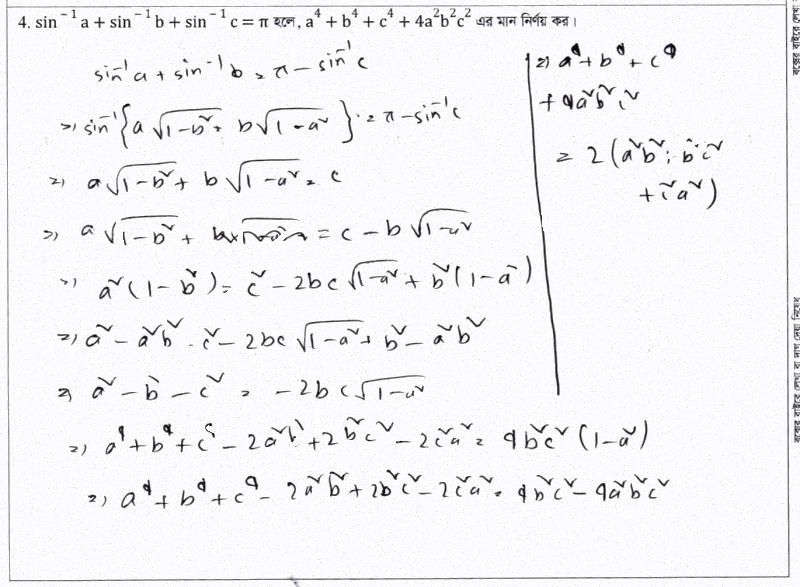 4. sin⁻¹ a + sin⁻¹ b + sin⁻¹ c = π হলে, a⁴ + b⁴ + c⁴ + 4a²b²c² এর মান নির্ণয় কর।
sin⁻¹a + sin⁻¹b = π − sin⁻¹c
⇒ sin⁻¹{a√(1−b²) + b√(1−a²)} = π − sin⁻¹c
⇒ a√(1−b²) + b√(1−a²) = c
⇒ a√(1−b²) + = c − b√(1−a²)
⇒ a²(1−b²) = c² − 2bc√(1−a²) + b²(1−a²)
⇒ a² − a²b² = c² − 2bc√(1−a²) + b² − a²b²
⇒ a² − b² − c² = −2bc√(1−a²)
⇒ a⁴ + b⁴ + c⁴ − 2a²b² + 2b²c² − 2c²a² = 4b²c²(1−a²)
⇒ a⁴ + b⁴ + c⁴ − 2a²b² + 2b²c² − 2c²a² = 4b²c² − 4a²b²c²
⇒ a⁴ + b⁴ + c⁴
+ 4a²b²c²
= 2(a²b² + b²c²
+ c²a²)